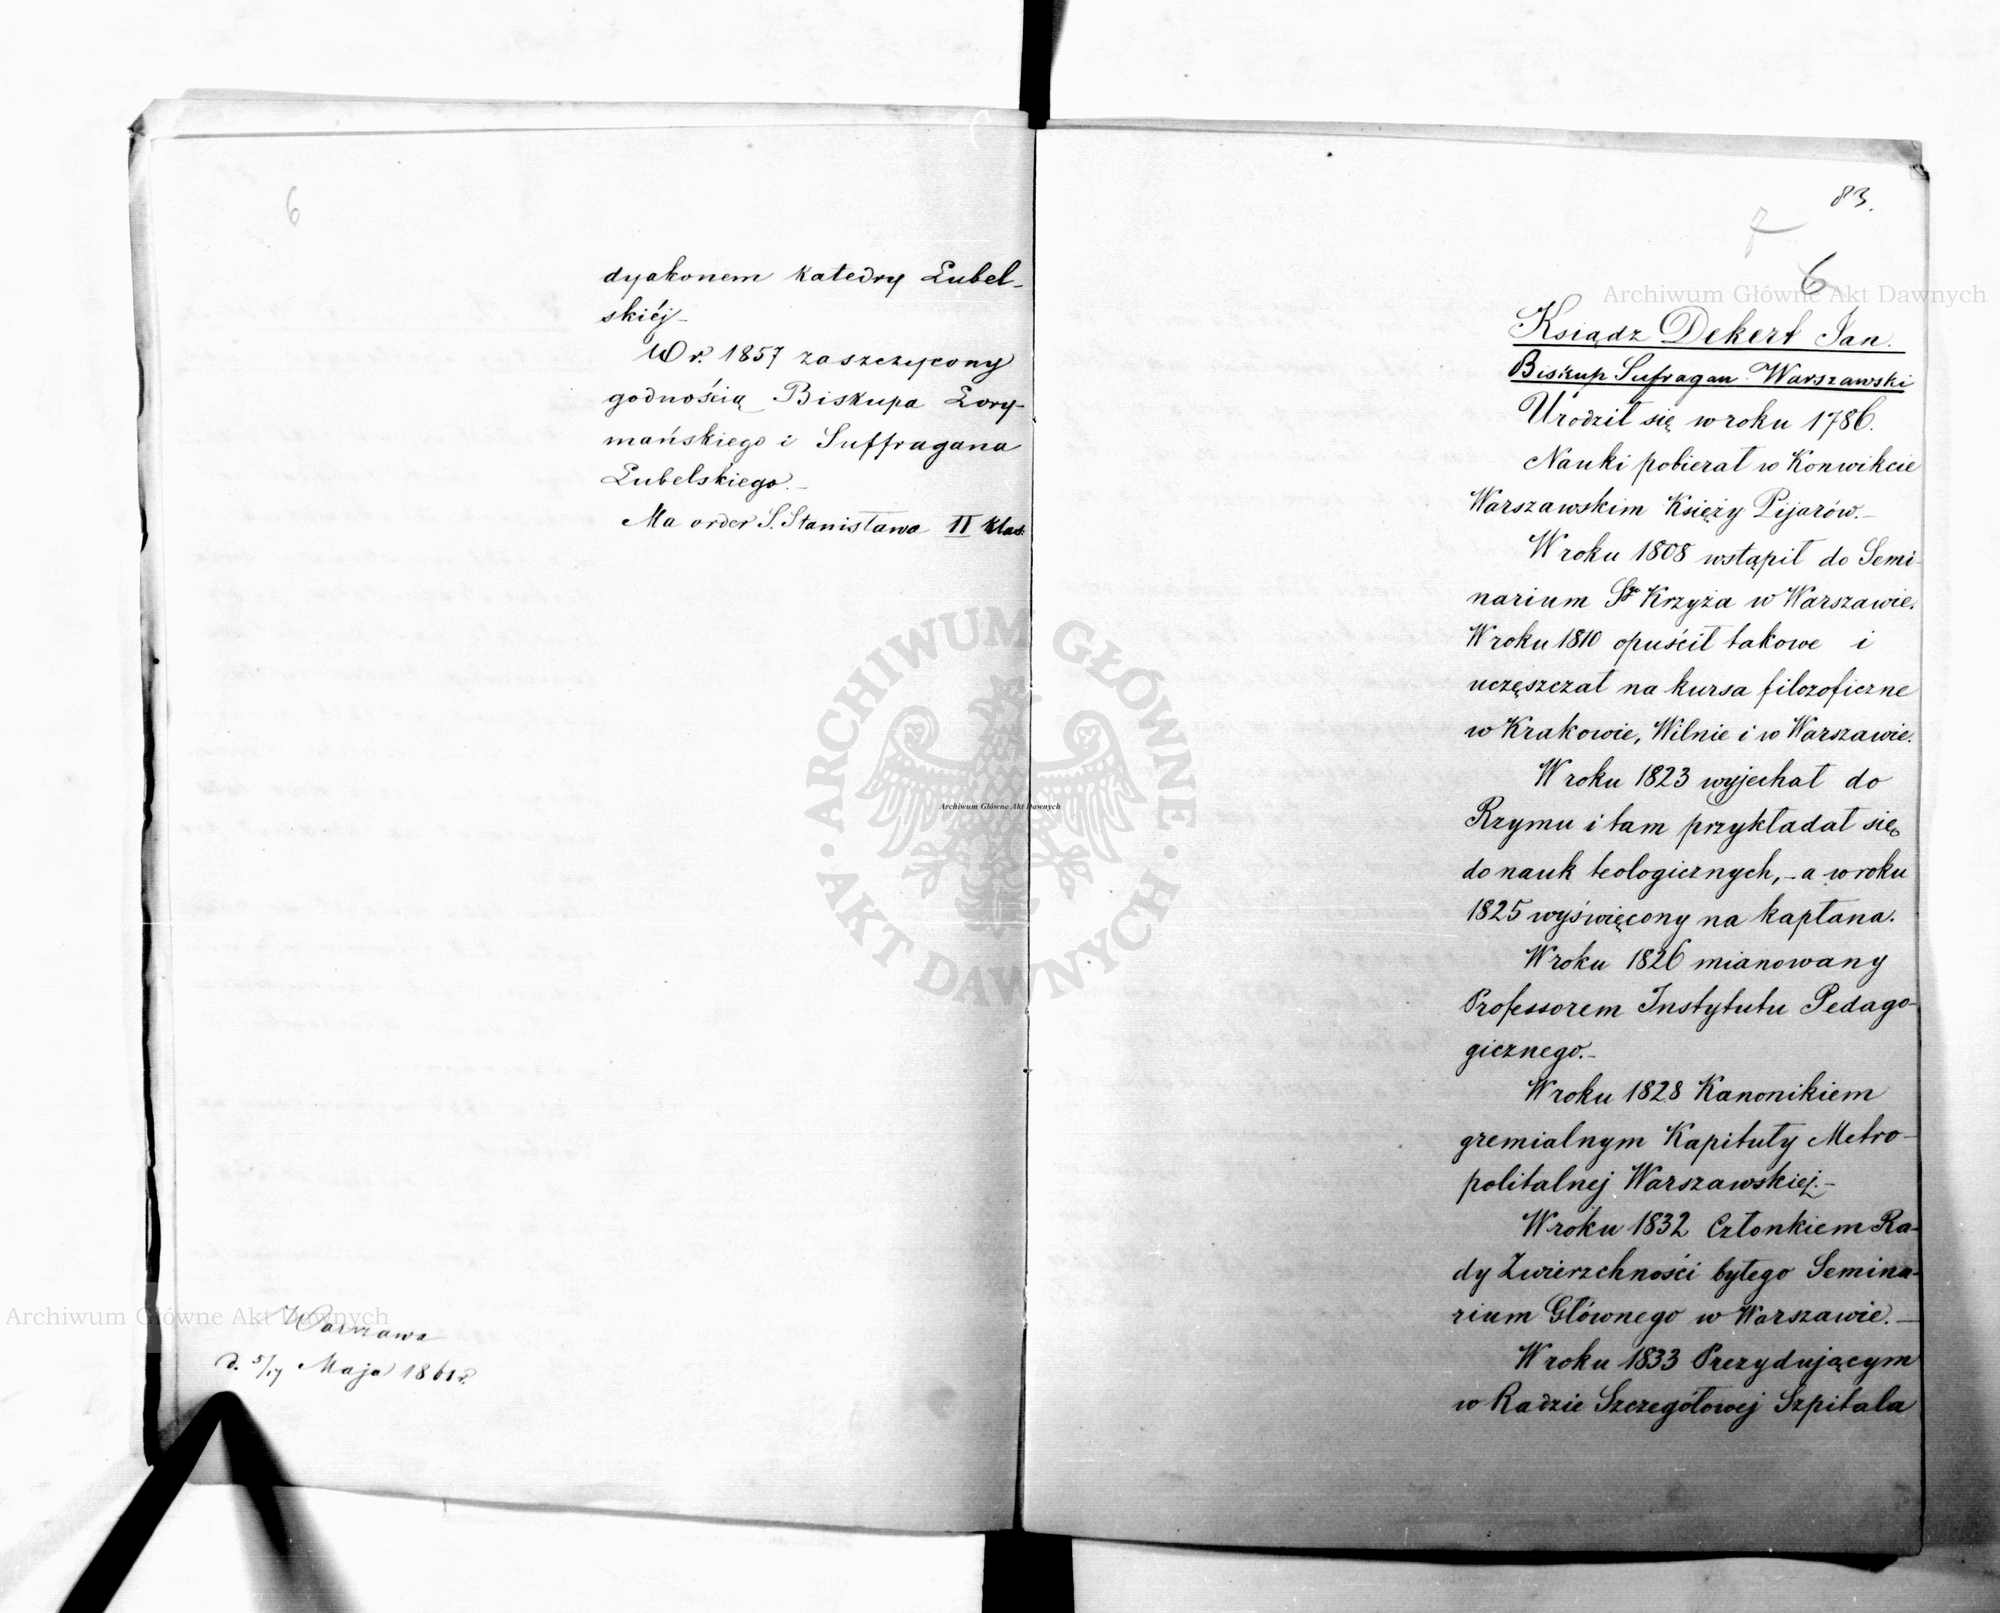 6
dyakonem katedry Lubel-
skiéj
W r. 1857 zaszczycony
godnością Biskupa Lory-
mańskiego i Suffragana
Lubelskiego.
Ma order S. Stanisława II klas:
Warszawa
d. 5/17 Maja 1861 r.
83.
7
6
Ksiądz Dekert Jan.
Biskup Sufragan Warszawski
Urodził się w roku 1786.
Nauki pobierał w Konwikcie
Warszawskim Księży Pijarów.
W roku 1808 wstąpił do Semi-
narium Sgo Krzyża w Warszawie.
W roku 1810 opuścił takowe i
uczęszczał na kursa filozoficzne
w Krakowie, Wilnie i w Warszawie.
W roku 1823 wyjechał do
Rzymu i tam przykładał się
do nauk teologicznych, - a w roku
1825 wyświęcony na kapłana.
W roku 1826 mianowany
Professorem Instytutu Pedago-
gicznego.
W roku 1828 Kanonikiem
gremialnym Kapituły Metro-
politalnej Warszawskiej.
W roku 1832 Członkiem Ra-
dy Zwierzchności byłego Semina-
rium Głównego w Warszawie.
W roku 1833 Prezydującym
w Radzie Szczegółowej Szpitala
Archiwum Główne Akt Dawnych
Archiwum Główne Akt Dawnych
Archiwum Główne Akt Dawnych
ARCHIWUM GŁÓWNE AKT DAWNYCH